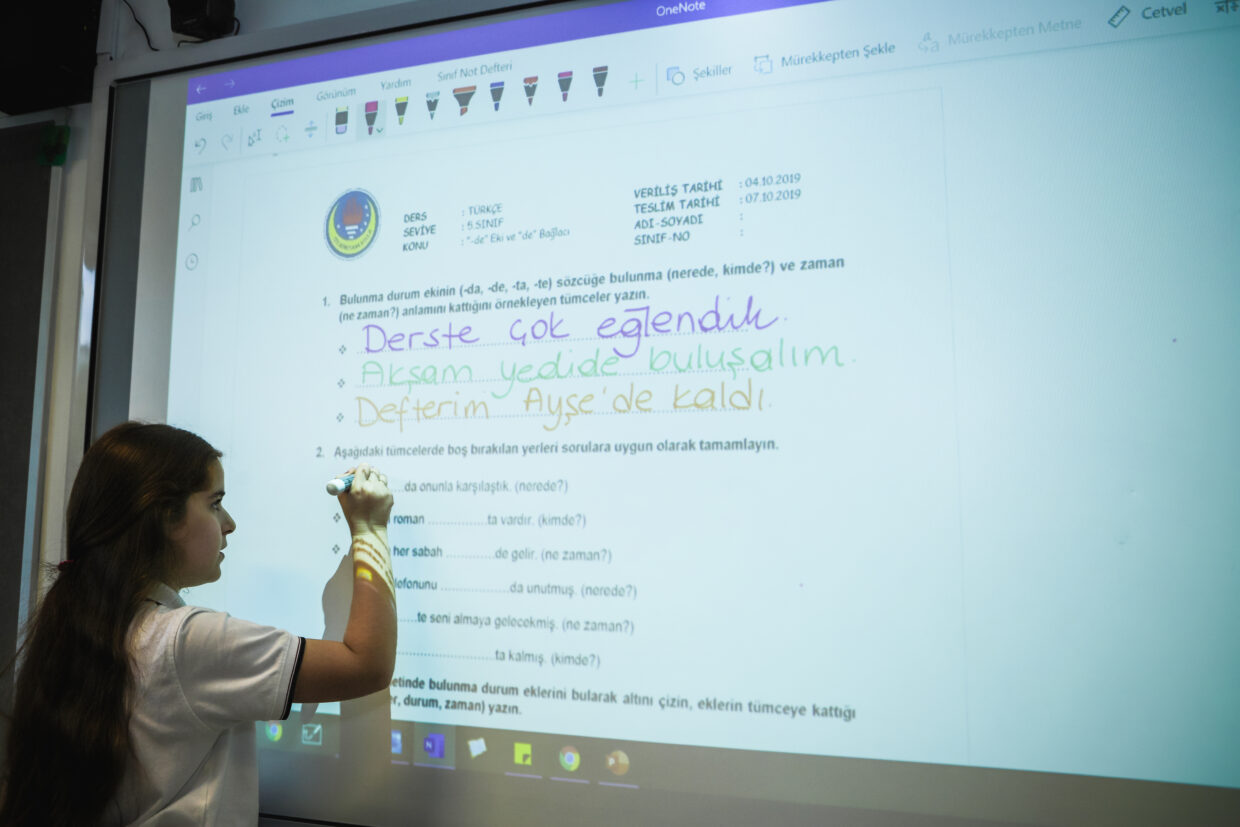 OneNote
Giriş Ekle Çizim Görünüm Yardım Sınıf Not Defteri
Şekiller Mürekkepten Şekle Mürekkepten Metne Cetvel
DERS : TÜRKÇE
SEVİYE : 5.SINIF
KONU : "-de" Eki ve "de" Bağlacı
VERİLİŞ TARİHİ : 04.10.2019
TESLİM TARİHİ : 07.10.2019
ADI-SOYADI :
SINIF-NO :
1. Bulunma durum ekinin (-da, -de, -ta, -te) sözcüğe bulunma (nerede, kimde?) ve zaman
(ne zaman?) anlamını kattığını örnekleyen tümceler yazın.
Derste çok eğlendik.
Akşam yedide buluşalım.
Defterim Ayşe'de kaldı.
2. Aşağıdaki tümcelerde boş bırakılan yerleri sorulara uygun olarak tamamlayın.
....da onunla karşılaştık. (nerede?)
roman ...............ta vardır. (kimde?)
her sabah ............de gelir. (ne zaman?)
lefonunu .................da unutmuş. (nerede?)
.....te seni almaya gelecekmiş. (ne zaman?)
........................ta kalmış. (kimde?)
etinde bulunma durum eklerini bularak altını çizin, eklerin tümceye kattığı
r, durum, zaman) yazın.